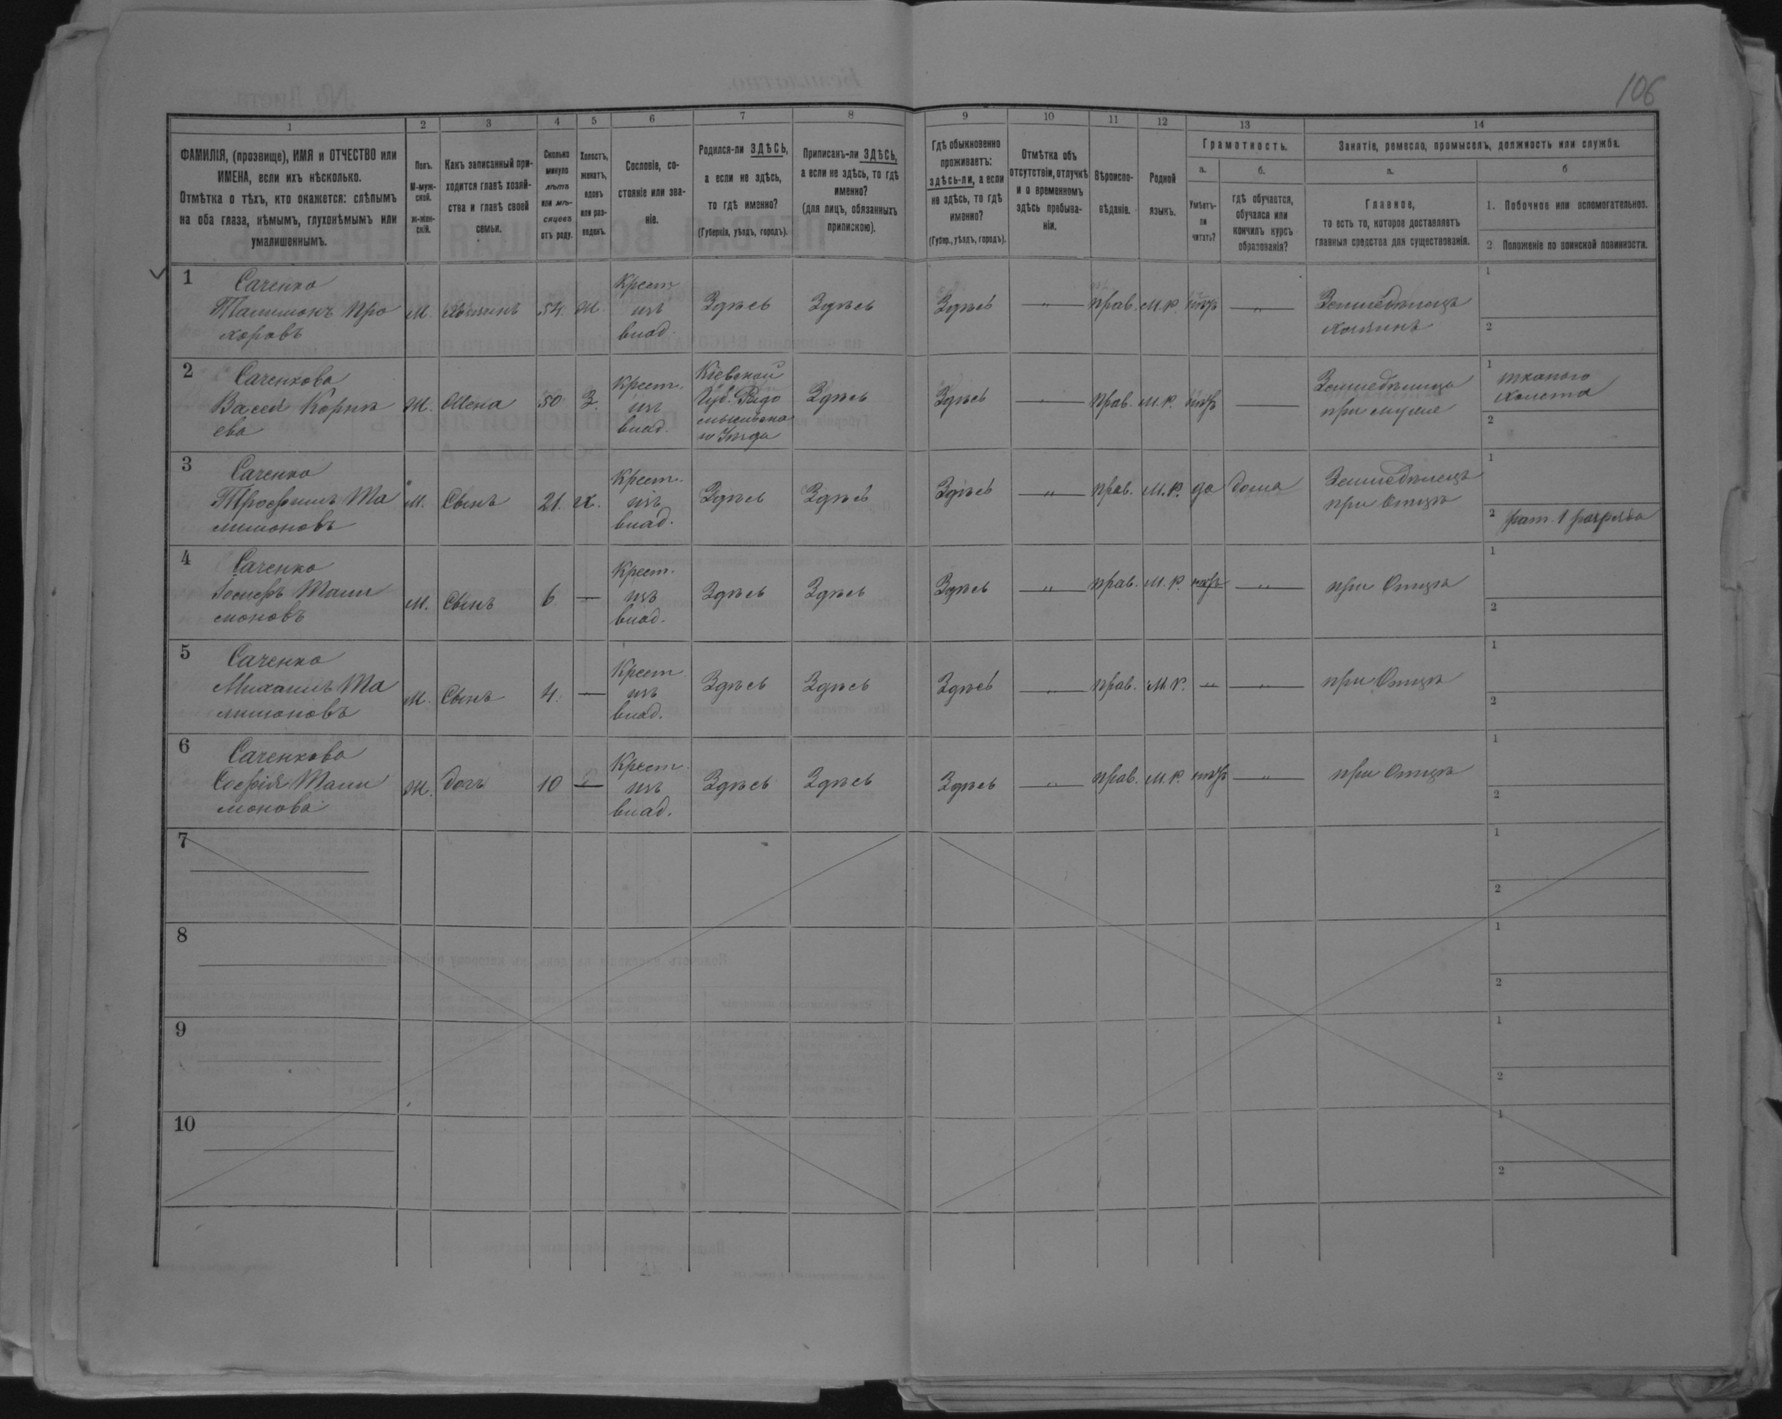 106
1 2 3 4 5 6 7 8 9 10 11 12 13 14
ФАМИЛІЯ, (прозвище), ИМЯ и ОТЧЕСТВО или
ИМЕНА, если ихъ нѣсколько.
Отмѣтка о тѣхъ, кто окажется: слѣпымъ
на оба глаза, нѣмымъ, глухонѣмымъ или
умалишеннымъ.
Полъ.
М-муж-
ской.
ж-жен-
скій.
Какъ записанный при-
ходится главѣ хозяй-
ства и главѣ своей
семьи.
Сколько
минуло
лѣтъ
или мѣ-
сяцевъ
отъ роду.
Холостъ,
женатъ,
вдовъ
или раз-
веденъ.
Сословіе, со-
стояніе или зва-
ніе.
Родился-ли ЗДѢСЬ,
а если не здѣсь,
то гдѣ именно?
(Губернія, уѣздъ, городъ).
Приписанъ-ли ЗДѢСЬ,
а если не здѣсь, то гдѣ
именно?
(для лицъ, обязанныхъ
припискою).
Гдѣ обыкновенно
проживаетъ:
здѣсь-ли, а если
не здѣсь, то гдѣ
именно?
(Губер., уѣздъ, городъ).
Отмѣтка объ
отсутствіи, отлучкѣ
и о временномъ
здѣсь пребыва-
ніи.
Вѣроиспо-
вѣданіе.
Родной
языкъ.
Грамотность.
а.
Умѣетъ-
ли
читать?
б.
гдѣ обучается,
обучался или
кончилъ курсъ
образованія?
Занятіе, ремесло, промыселъ, должность или служба.
а.
Главное,
то есть то, которое доставляетъ
главныя средства для существованія.
б
1. Побочное или вспомогательное.
2 Положеніе по воинской повинности.
1 Саченко
Талимонъ Про
хоровъ
М. Хозяинъ 54. Ж. Крест
изъ
влад. Здѣсь Здѣсь Здѣсь — " — прав. М.Р. нѣтъ — " — Земледѣлецъ
хозяинъ 1
2
2 Саченкова
Корнѣ
ева
Ж. Жена 50 З. Крест.
изъ
влад. Кіевской
Губ. Радо
мысльска
го Уѣзда Здѣсь Здѣсь — " — прав. М.Р. нѣтъ — Земледѣлица
при мужѣ 1 тканьё
холста
2
3 Саченко
Трофимъ Та
лимоновъ
М. Сынъ 21. Х. Крест.
изъ
влад. Здѣсь Здѣсь Здѣсь — " — прав. М.Р. да дома Земледѣлецъ
при Отцѣ 1
2 рат. 1 разряда
4 Саченко
Іосифъ Тали
моновъ
М. Сынъ 6 — Крест.
изъ
влад. Здѣсь Здѣсь Здѣсь — " — прав. М.Р. нѣтъ — " — при Отцѣ 1
2
5 Саченко
Михаилъ Та
лимоновъ
М. Сынъ 4. — Крест
изъ
влад. Здѣсь Здѣсь Здѣсь — " — прав. М.Р. — " — — " — при Отцѣ 1
2
6 Саченкова
Софія Тали
монова
Ж. дочь 10 — Крест
изъ
влад. Здѣсь Здѣсь Здѣсь — " — прав. М.Р. нѣтъ — " — при Отцѣ 1
2
7 1
2
8 1
2
9 1
2
10 1
2